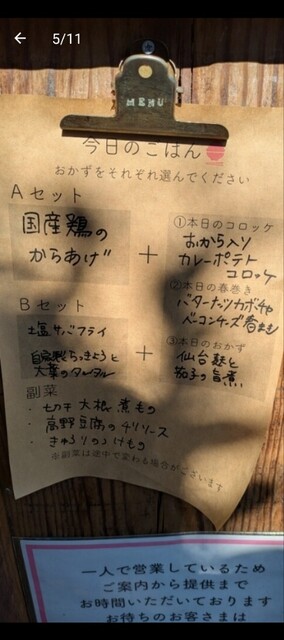 5/11
MENU
今日のごはん
おかずをそれぞれ選んでください
Aセット
国産鶏の
からあげ
+
①本日のコロッケ
おから入り
カレーポテト
コロッケ
②本日の春巻き
バターナッツカボチャ
ベーコンチーズ春まき
Bセット
塩サバフライ
自家製らっきょうと
大葉のタルタル
+
③本日のおかず
仙台麩と
茄子の旨煮
副菜
・切干大根煮もの
・高野豆腐のチリソース
・きゅうりのつけもの
※副菜は途中で変わる場合がございます
一人で営業しているため
ご案内から提供まで
お時間いただいております
お待ちのお客さまは